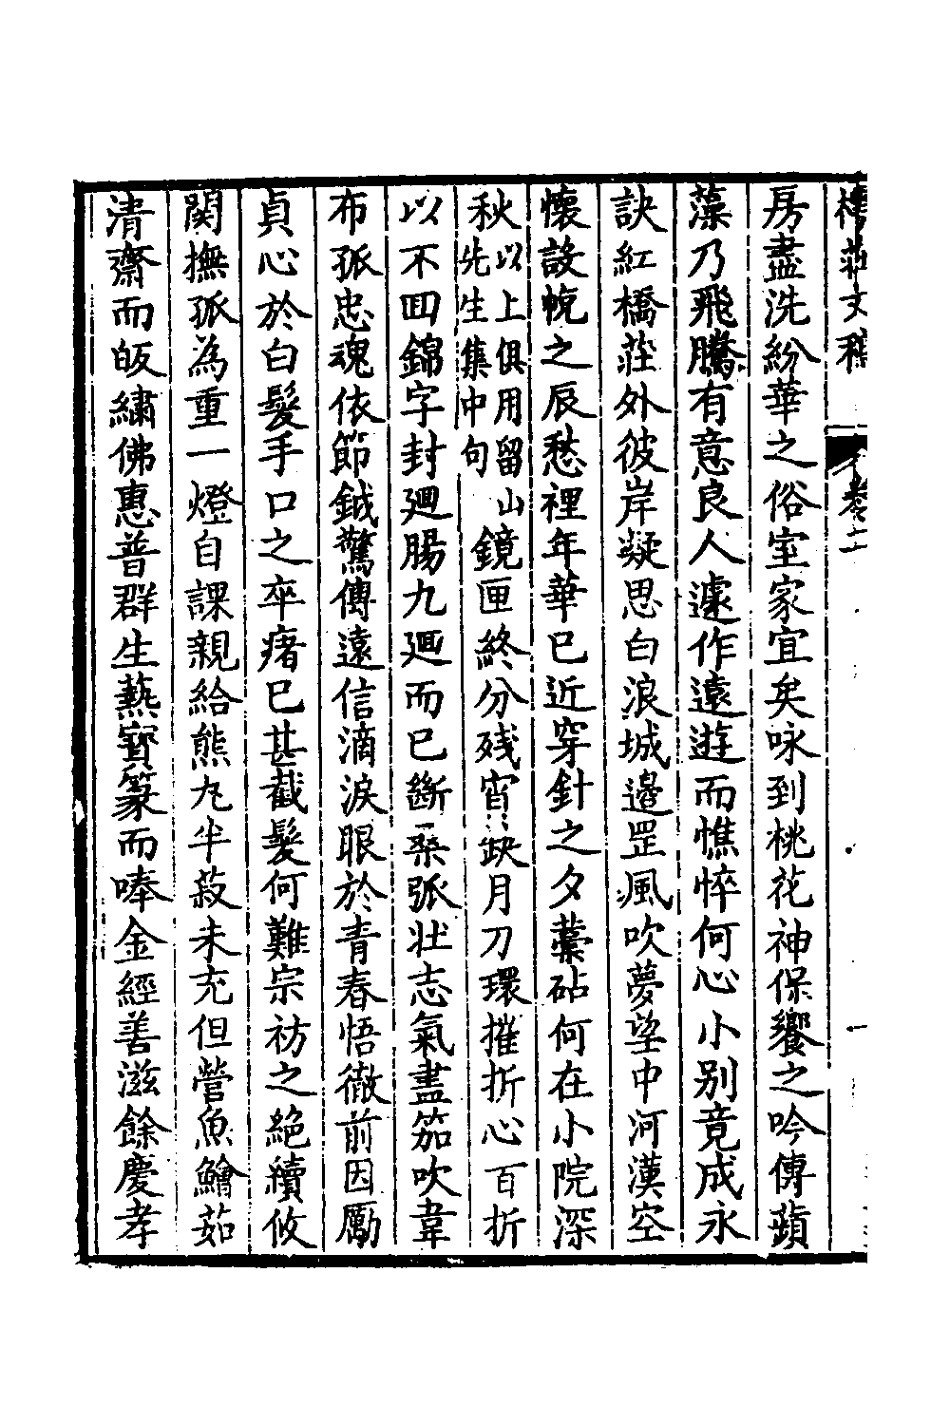 樗莊文稿 卷二
房盡洗紛華之俗室家宜矣咏到桃花神保饗之吟傳蘋
藻乃飛騰有意良人遽作遠遊而憔悴何心小别竟成永
訣紅橋莊外彼岸凝思白浪城邊罡風吹夢望中河漢空
懷設帨之辰愁裡年華已近穿針之夕藁砧何在小院深
秋以上俱用留山先生集中句鏡匣終分殘宵缺月刀環摧折心百折
以不囬錦字封廻腸九廻而已斷桑弧壮志氣盡笳吹韋
布孤忠魂依節鉞驚傳遠信滴淚眼於青春悟徹前因勵
貞心於白髮手口之卒瘏已甚截髮何難宗祊之絕續攸
関撫孤為重一燈自課親給熊丸半菽未充但營魚鱠茹
清齋而皈繡佛惠普群生爇寳篆而唪金經善滋餘慶孝